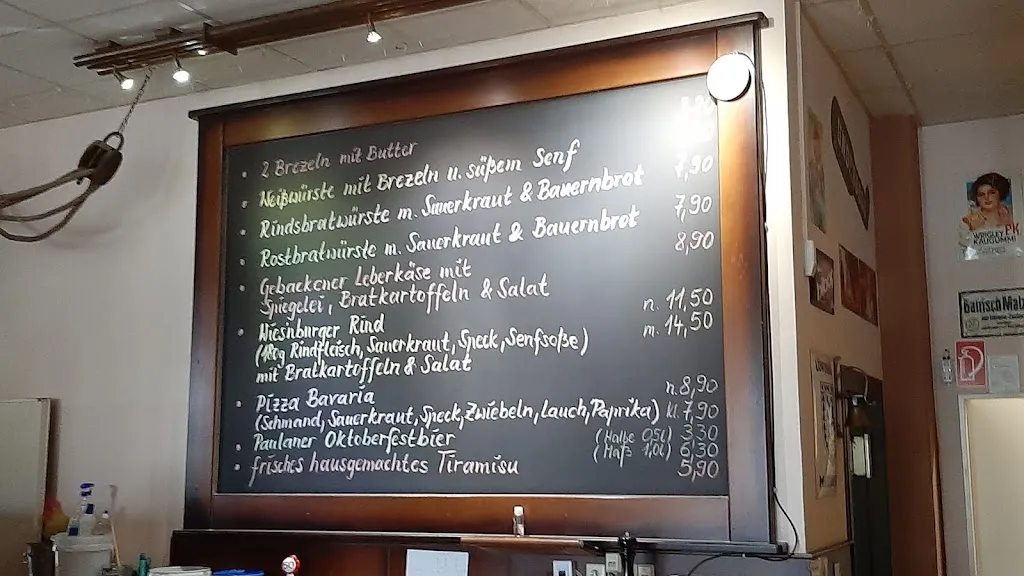 • 2 Brezeln mit Butter
• Weißwürste mit Brezeln u. süßem Senf
• Rindsbratwürste m. Sauerkraut & Bauernbrot 7,90
• Rostbratwürste m. Sauerkraut & Bauernbrot 7,90
• Gebackener Leberkäse mit 8,90
Spiegelei, Bratkartoffeln & Salat
• Wiesnburger Rind n. 11,50
(180g Rindfleisch, Sauerkraut, Speck, Senfsoße) m. 14,50
mit Bratkartoffeln & Salat
• Pizza Bavaria n. 8,90
(Schmand, Sauerkraut, Speck, Zwiebeln, Lauch, Paprika) kl. 7,90
• Paulaner Oktoberfestbier (Halbe 0,5l) 3,30
(Maß 1,0l) 6,30
• frisches hausgemachtes Tiramisu 5,90
PK
KAUGUMMI